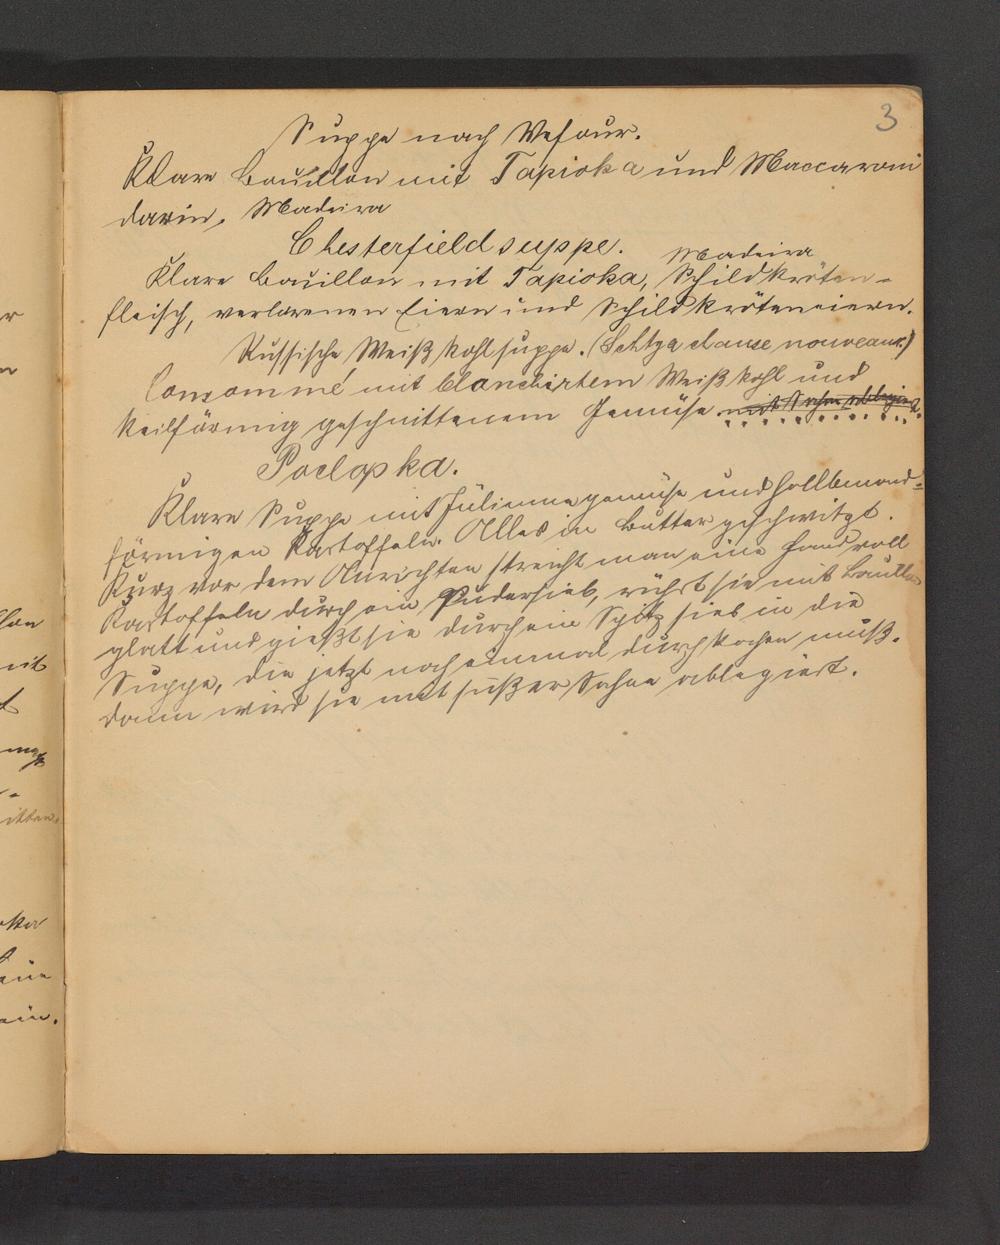 3
Suppe nach Vefour.
Klare Bouillon mit Tapioka und Maccaroni
darin. Madeira
Chesterfieldsuppe.
Madeira
Klare Bouillon mit Tapioka, Schildkröten-
fleisch, verlorenen Eiern und Schildkröteneiern.
Russische Weißkohlsuppe. (
Consommé mit blanchirtem Weißkohl und
keilförmig geschnittenem Gemüse mit Sahne ablegirt.
Poclopka.
Klare Suppe mit Juliennegemüse und hallbmond-
förmigen Kartoffeln. Alles in Butter geschwitzt.
Kurz vor dem Anrichten streicht man eine Handvoll
Kartoffeln durch ein Pudersieb, rührt sie mit Bouillon
glatt und gießt sie durch ein Spitzsieb in die
Suppe, die jetzt noch einmal durchkochen muß.
dann wird sie mit süßer Sahne ablegiert.